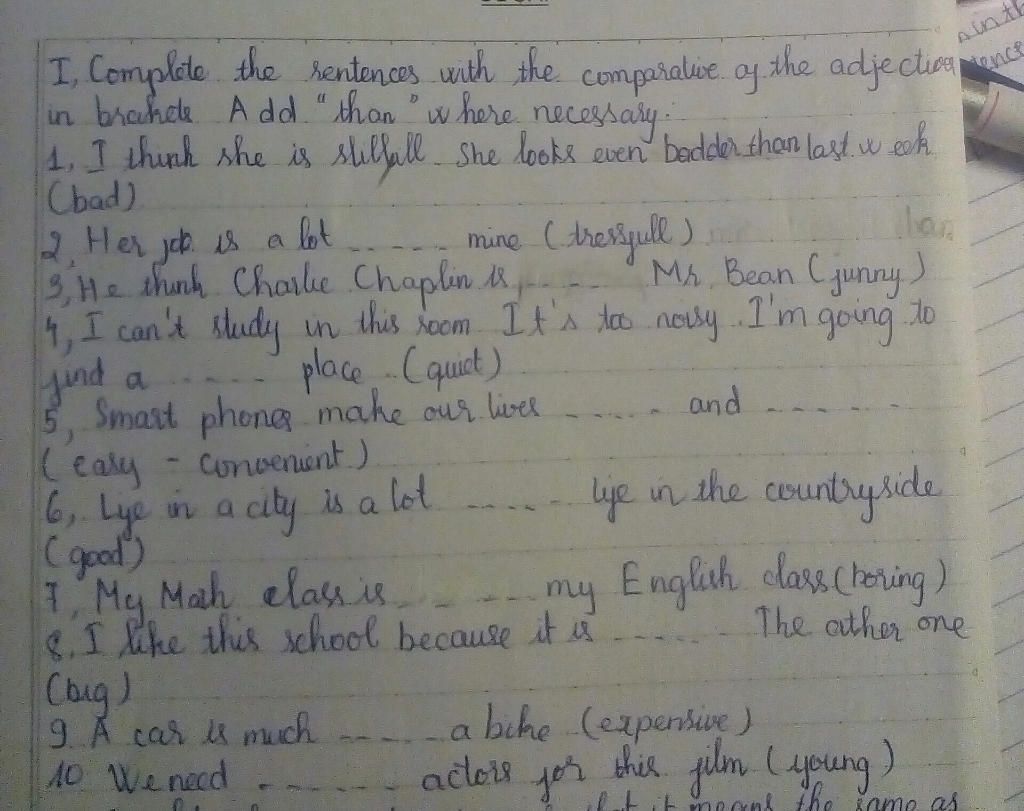 I, Complete the sentences with the comparative of the adjective
in brackets Add "than" where necessary.
1, I think she is still fall. She looks even badder than last week
(bad)
2, Her job is a lot ..... mine (tressfull)
3, He think Charlie Chaplin is ..... Mr. Bean (funny)
4, I can't study in this room It's too noisy. I'm going to
find a ..... place (quiet)
5, Smart phones make our lives ..... and ......
(easy - convenient)
6, Life in a city is a lot ..... life in the countryside
(good)
7, My Math class is ..... my English class (boring)
8, I like this school because it is ..... The other one
(big)
9 A car is much ..... a bike (expensive)
10 We need ...... actors for this film (young)
it means the same as
in th